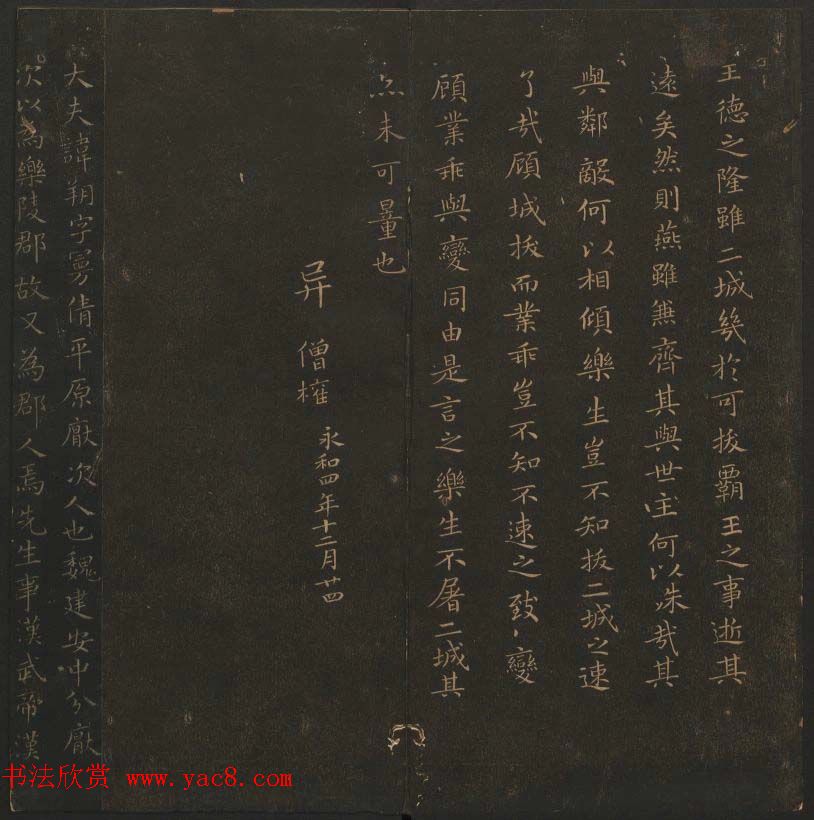 王德之隆雖二城幾於可拔霸王之事逝其
遠矣然則燕雖無齊其與世主何以殊哉其
與鄰敵何以相傾樂生豈不知拔二城之速
了哉顧城拔而業乖豈不知不速之致〻變
顧業乖與變同由是言之樂生不屠二城其
亦未可量也
异 僧權 永和四年十二月廿四
大夫諱朔字曼倩平原厭次人也魏建安中分厭
次以為樂陵郡故又為郡人焉先生事漢武帝漢
书法欣赏 www.yac8.com